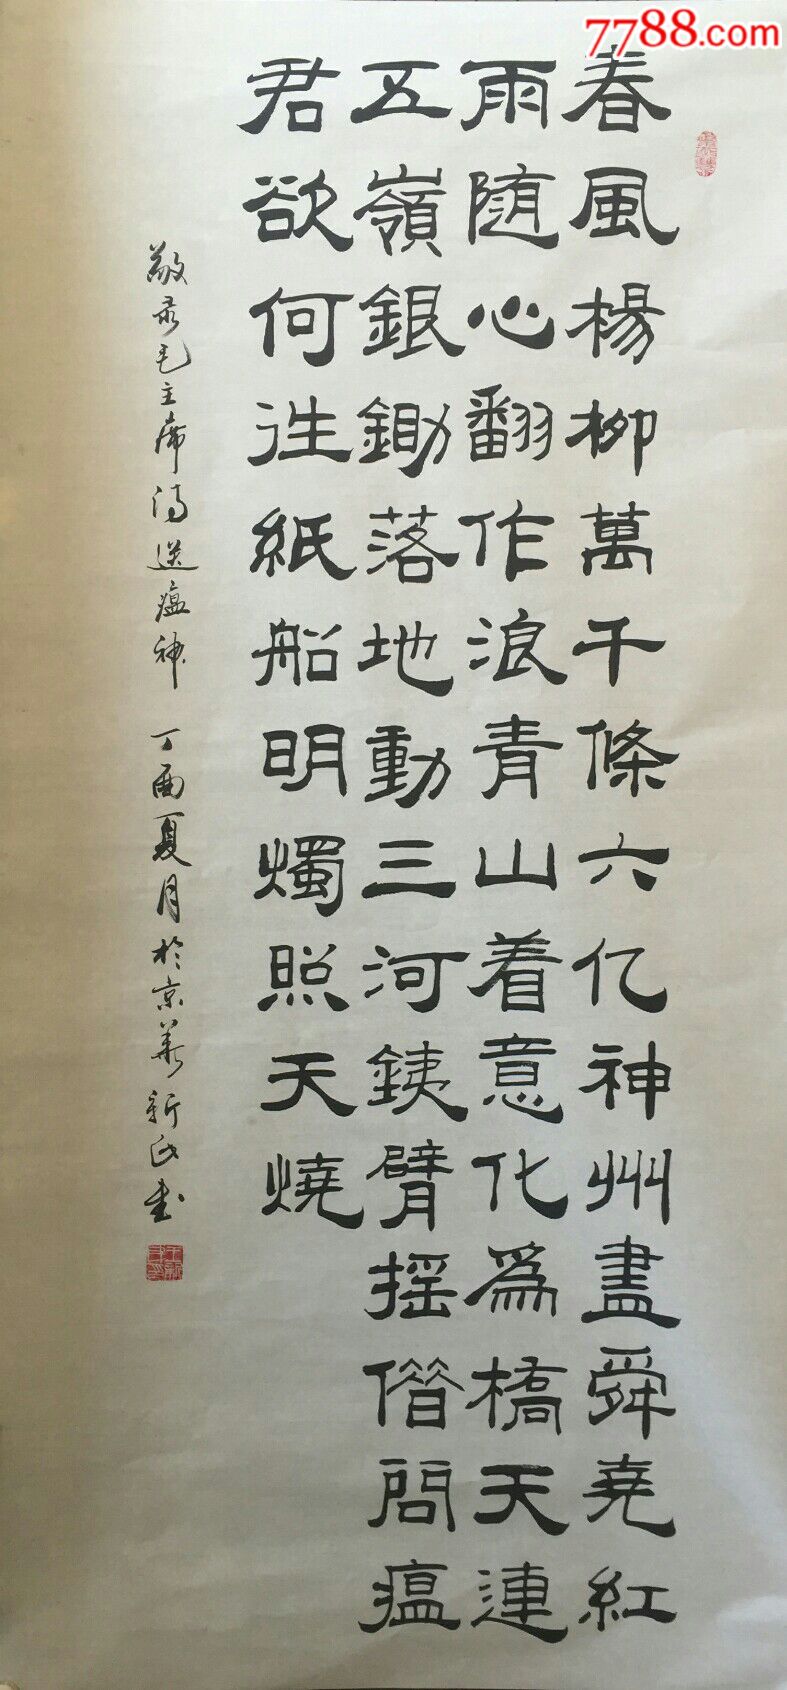 7788.com
春風楊柳萬千條六亿神州盡舜堯紅
雨随心翻作浪青山着意化爲橋天連
五嶺銀鋤落地動三河鉄臂摇借問瘟
君欲何往紙船明燭照天燒
敬录毛主席诗送瘟神 丁酉夏月於京華新民书